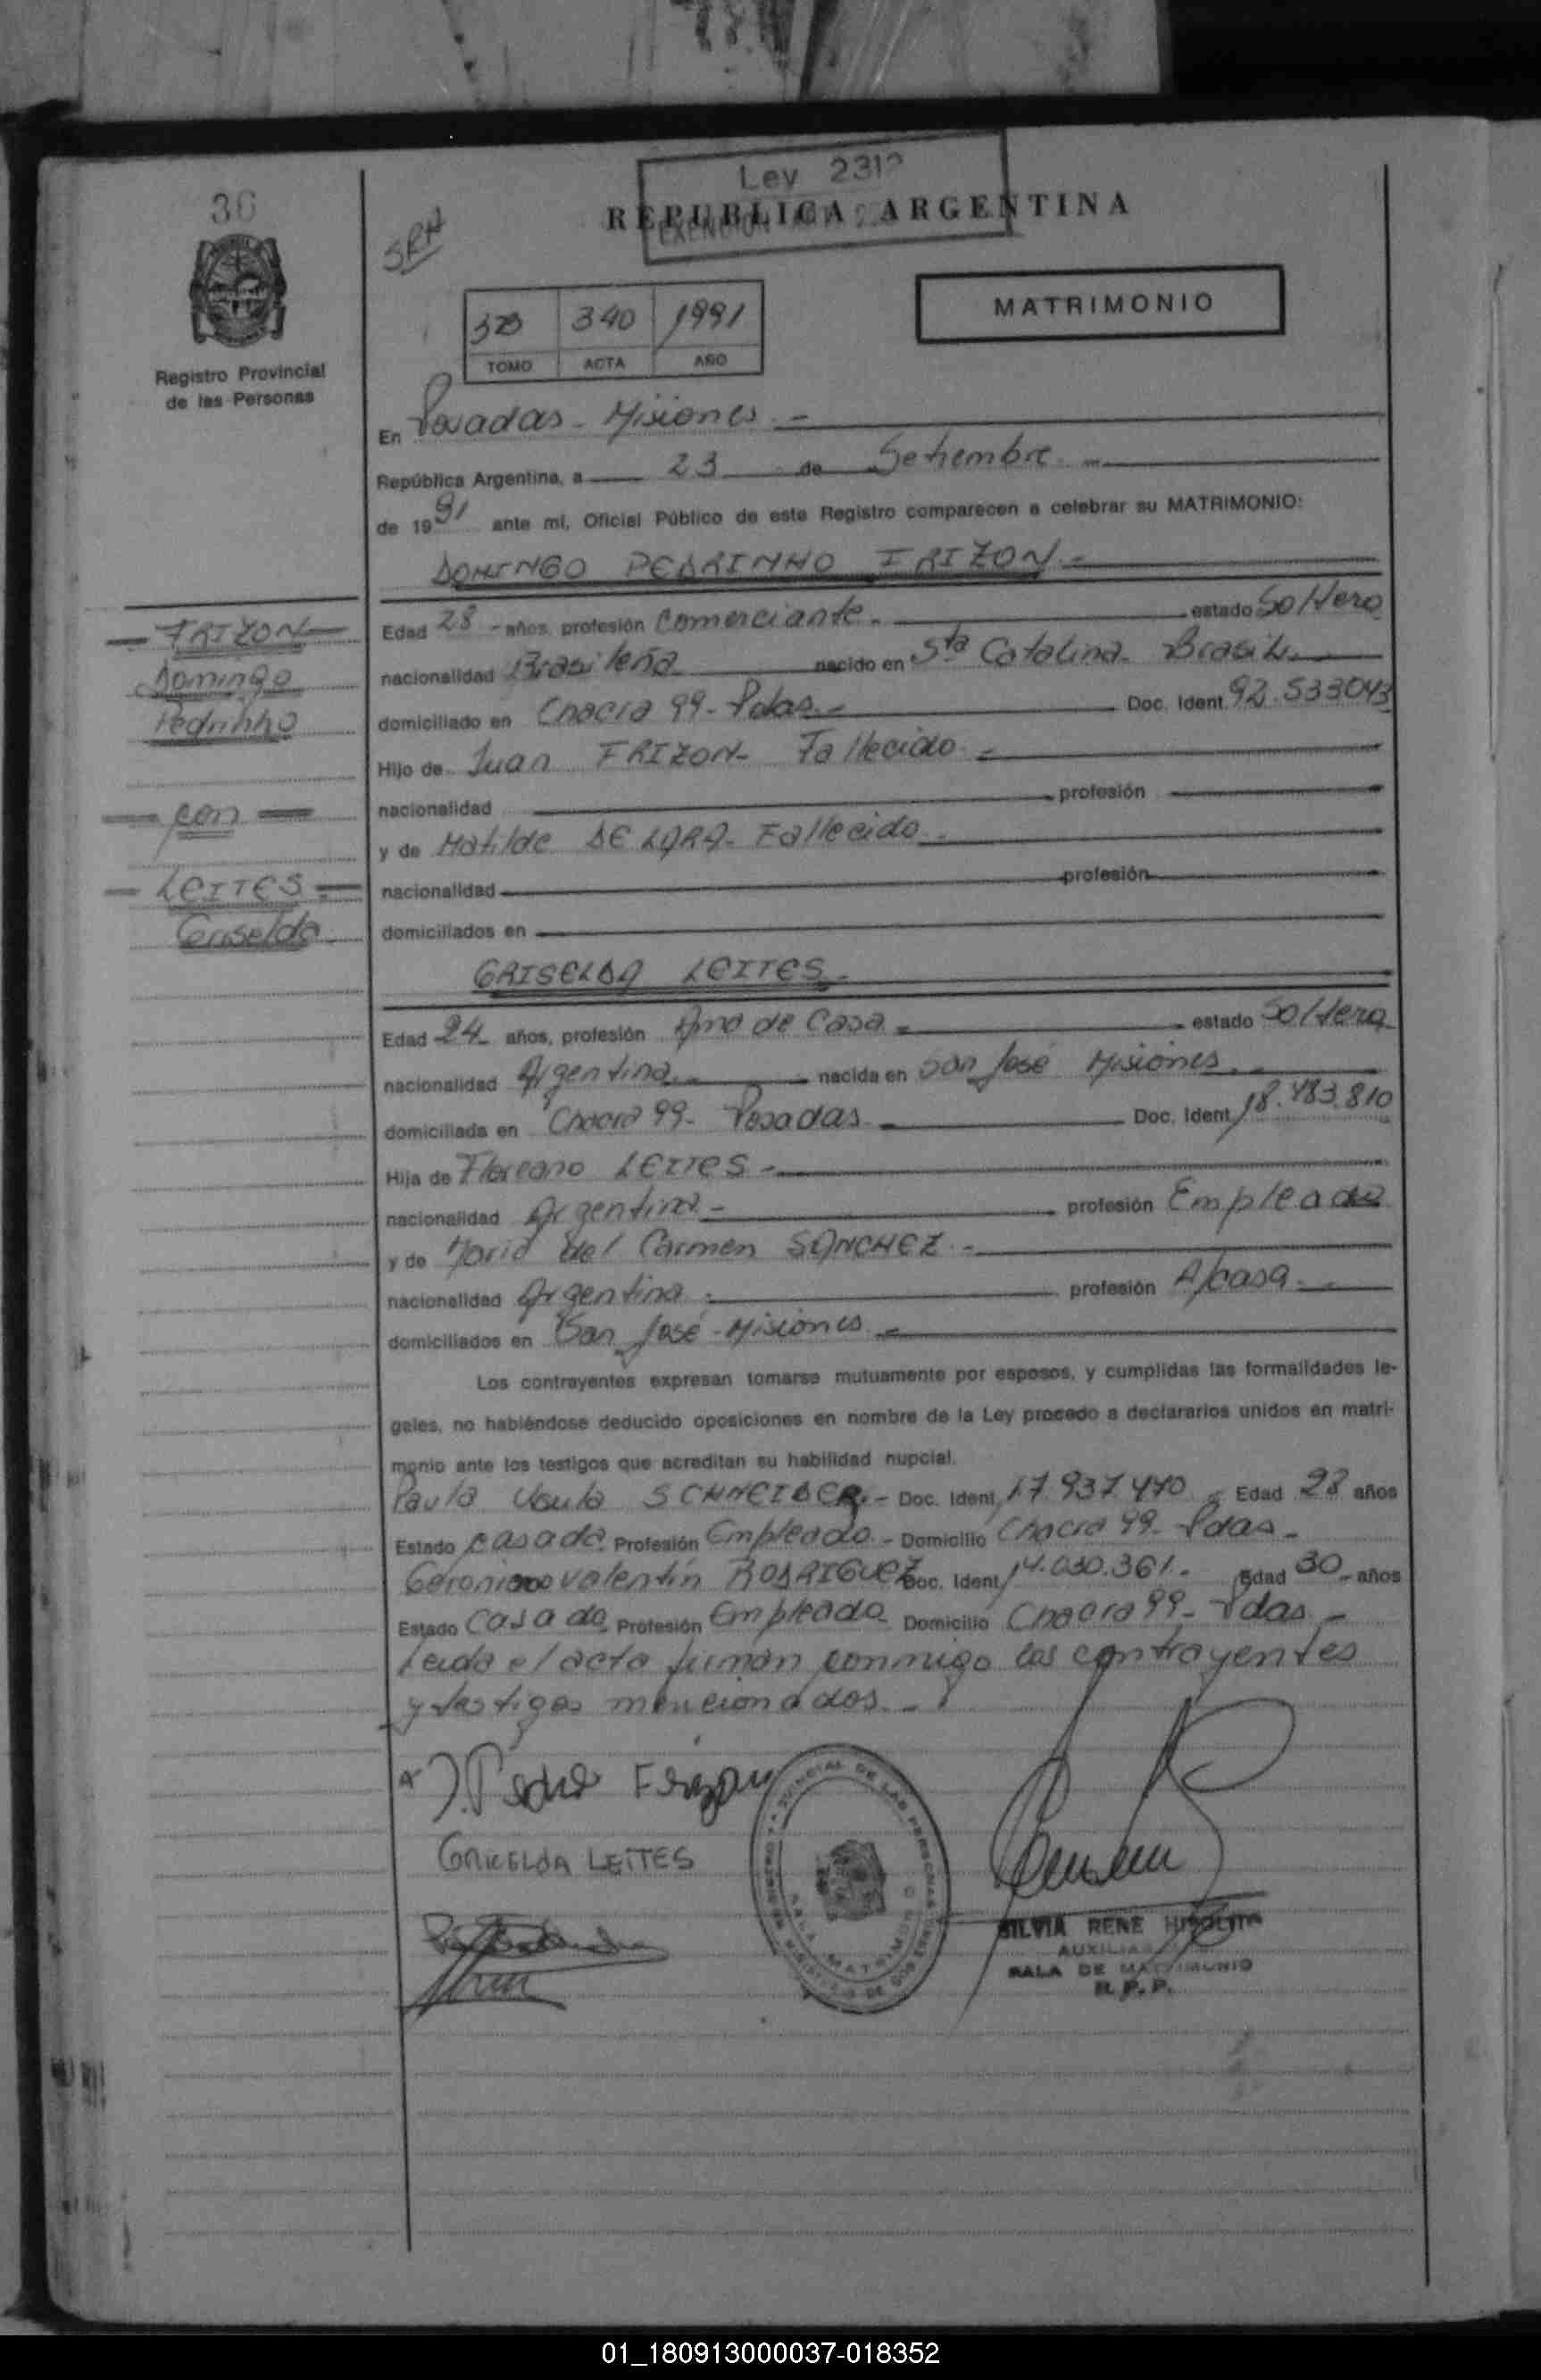 Ley 2312
36
REPUBLICA ARGENTINA
EXENCION
SRH
MATRIMONIO
340 1991
TOMO ACTA AÑO
Registro Provincial
de las Personas
En Posadas - Misiones. -
República Argentina, a 23 de Setiembre. -
de 1991 ante mí, Oficial Público de este Registro comparecen a celebrar su MATRIMONIO:
DOMINGO PEDRINHO FRIZON. -
Edad 28 - años, profesión Comerciante. - estado Soltero
nacionalidad Brasileña nacido en Sta Catalina - Brasil. -
domiciliado en Chacra 99 - Pdas. - Doc. Ident. 92.533043
Hijo de Juan FRIZON - Fallecido -
nacionalidad profesión
y de Matilde DE LARA - Fallecido. -
nacionalidad profesión
domiciliados en
- FRIZON -
Domingo
Pedrinho
- con -
- LEITES -
Griselda
GRISELDA LEITES. -
Edad 24 años, profesión Ama de Casa - estado Soltera
nacionalidad Argentina. - nacida en San José Misiones. -
domiciliada en Chacra 99 - Posadas. - Doc. Ident. 18.483.810
Hija de Floreano LEITES -
nacionalidad Argentina - profesión Empleado
y de María del Carmen SANCHEZ. -
nacionalidad Argentina. profesión A/casa. -
domiciliados en San José - Misiones -
Los contrayentes expresan tomarse mutuamente por esposos, y cumplidas las formalidades le-
gales, no habiéndose deducido oposiciones en nombre de la Ley procedo a declararlos unidos en matri-
monio ante los testigos que acreditan su habilidad nupcial.
Paula SCHNEIDER. - Doc. Ident. 17.937.470 Edad 28 años
Estado casada Profesión Empleada - Domicilio Chacra 99 - Pdas -
Geronimo Valentín RODRIGUEZ Doc. Ident. 14.030.361. Edad 30 - años
Estado Casado Profesión Empleado Domicilio Chacra 99 - Pdas -
Leida el acta firman conmigo los contrayentes
y testigos mencionados. -
GRICELDA LEITES
SILVIA RENE HIPOLITO
AUXILIAR
SALA DE MATRIMONIO
R. P. P.
01_180913000037-018352